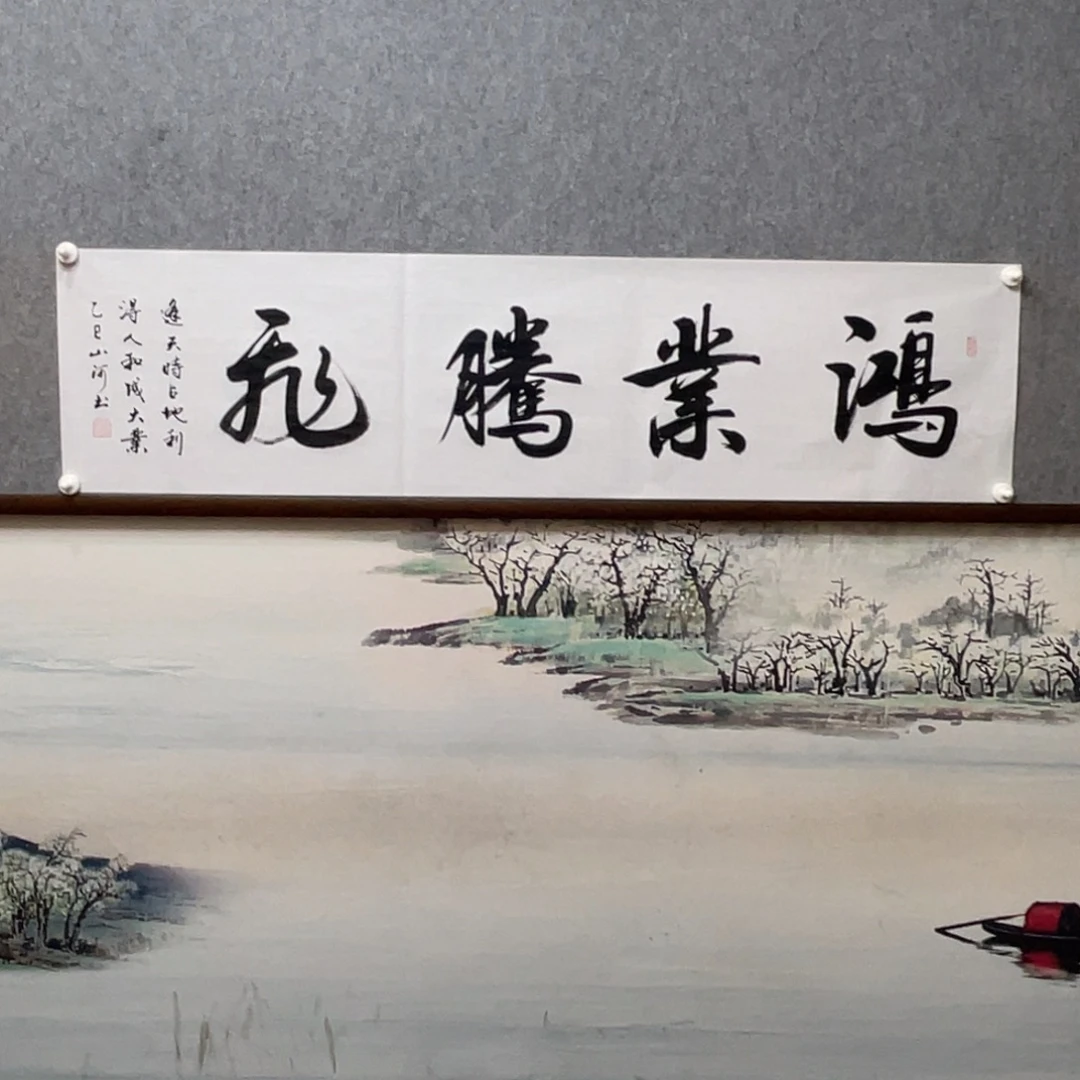 鴻業騰飛
逢天時占地利
得人和成大業
乙巳山河書